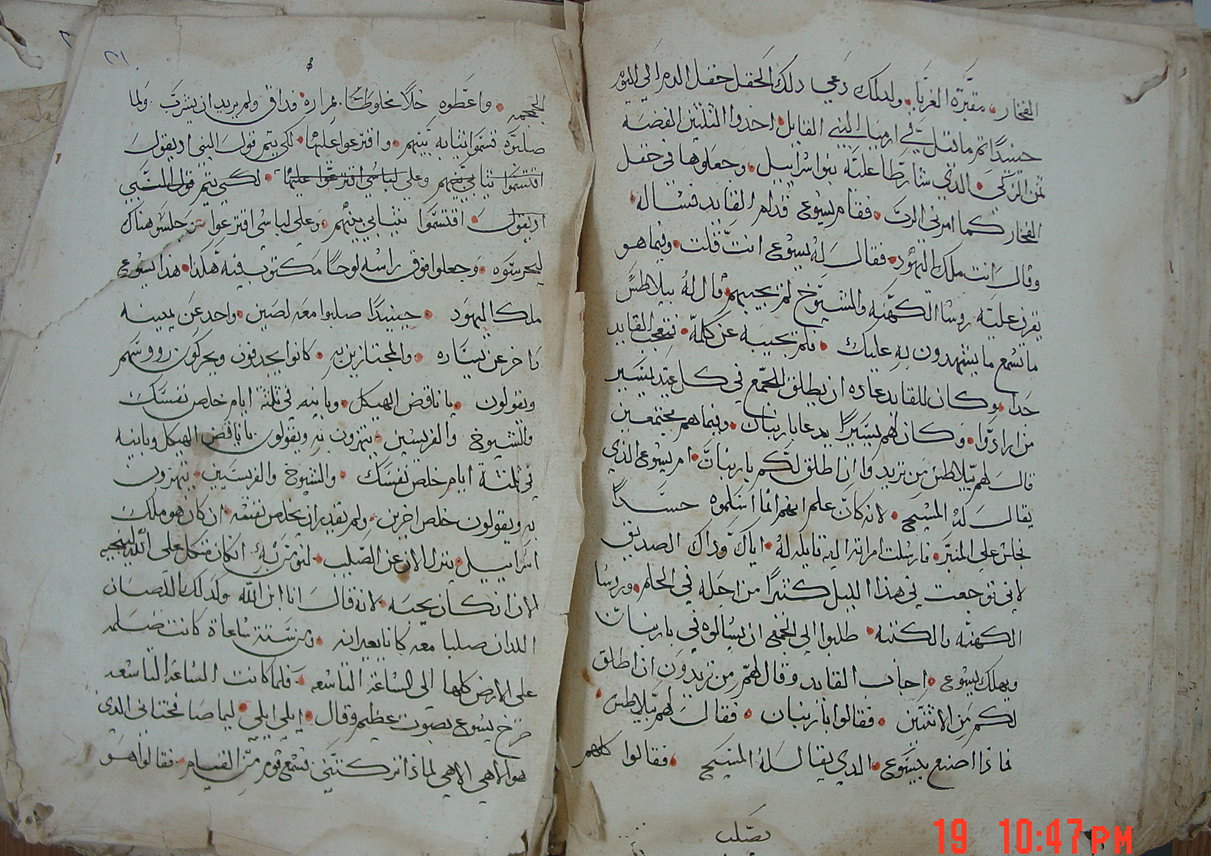 الفخار • مقبرة الغربا • ولدلك دعي دلك الحقل حقل الدم الي اليوم
حينيدًا تم ما قيل في ارميا النبي القايل • اخدوا الثلثين الفضة
ثمن الزكي • الذي شارطا عليه بنوا اسراييل • وجعلوها في حقل
الفخار كما امرني الرب • فقام يسوع قدام القايد فساله
وقال انت ملك اليهود • فقال له يسوع انت قلت • وفيما هو
يقرف عليه روسا الكهنة والمشيوخ لم يجيبهم • قال له بيلاطس
ما تسمع ما يشهدون به عليك • فلم يجيبه عن كلمة • فتعجب القايد
جدا • وكان للقايد عاده ان يطلق للجمع في كل عيد يسير
من ارادوا • وكان لهم يسيرًا يدعا باربنان • وفيما هم مجتمعين
قال لهم بيلاطس من تريدوا ان اطلق لكم باربنان • ام يسوع الذي
يقال له المسيح • لانه كان علم انهم انما اسلموه حسدًا
جلس علي المنبر • فارسلت امراته اليه قايله له • اياك وداك الصديق
لاني توجعت في هذا الليل كتيرًا من اجله في الحلم • وروسا
الكهنه والكتبه • طلبوا الي الجمع ان يسالوه في باربنان
ويهلك يسوع • اجاب القايد وقال لهم من تريدون ان اطلق
لكم من الاتنين • فقالوا باربنان • فقال لهم بيلاطس •
فماذا اصنع بيسوع • الدي يقال له المسيح • فقالوا كلهم
يصلب
٢١
الجمجمه • واعطوه خلًا مخلوطًا بمراره وداق ولم يريد ان يشرب • ولما
صلبوه قسموا ثيابه بينهم • واقترعوا عليها • لكي يتم قول النبي اد يقول
اقتسموا ثيابي بينهم وعلي لباسي اقترعوا عليها • لكي يتم قول النبي
اد يقول • اقتسموا ثيابي بينهم • وعلي لباسي اقترعوا • وجلس هناك
ليحرسوه • وجعلوا فوق راسه لوحًا مكتوب فيه هكدا • هدا يسوع
ملك اليهود • حينيدًا صلبوا معه لصين • واحد عن يمينه
واخر عن يساره • والمجتازين به • كانوا يجدفون ويحركون رووسهم
ويقولون • يا ناقض الهيكل • وبانيه في ثلثة ايام خلص نفسك
والشيوخ والفريسين • يهزون به ويقولون يا ناقض الهيكل وبانيه
في ثلثة ايام خلص نفسك • والشيوخ والفريسيين • يهزون
به ويقولون خلص اخرين • ولم يقدر ان يخلص نفسه • ان كان هو ملك
اسراييل • ينزل الان عن الصليب • لنومن به • ان كان متكل علي الله ينجيه
الان ان كان يحبه • لانه قال انا ابن الله ولدلك اللصان
اللدان صلبا معه كانا يعيرانه • ومن ستة ساعاة كانت ضلمه
علي الارض كلها الي الساعة التاسعه • فلما كانت الساعة التاسعه
صرخ يسوع بصوت عظيم وقال • ايلي ايلي • ليما صافختاني الدي
هو الاهي الاهي لماذا تركتني • فسمع قوم من القيام • فقالوا هو